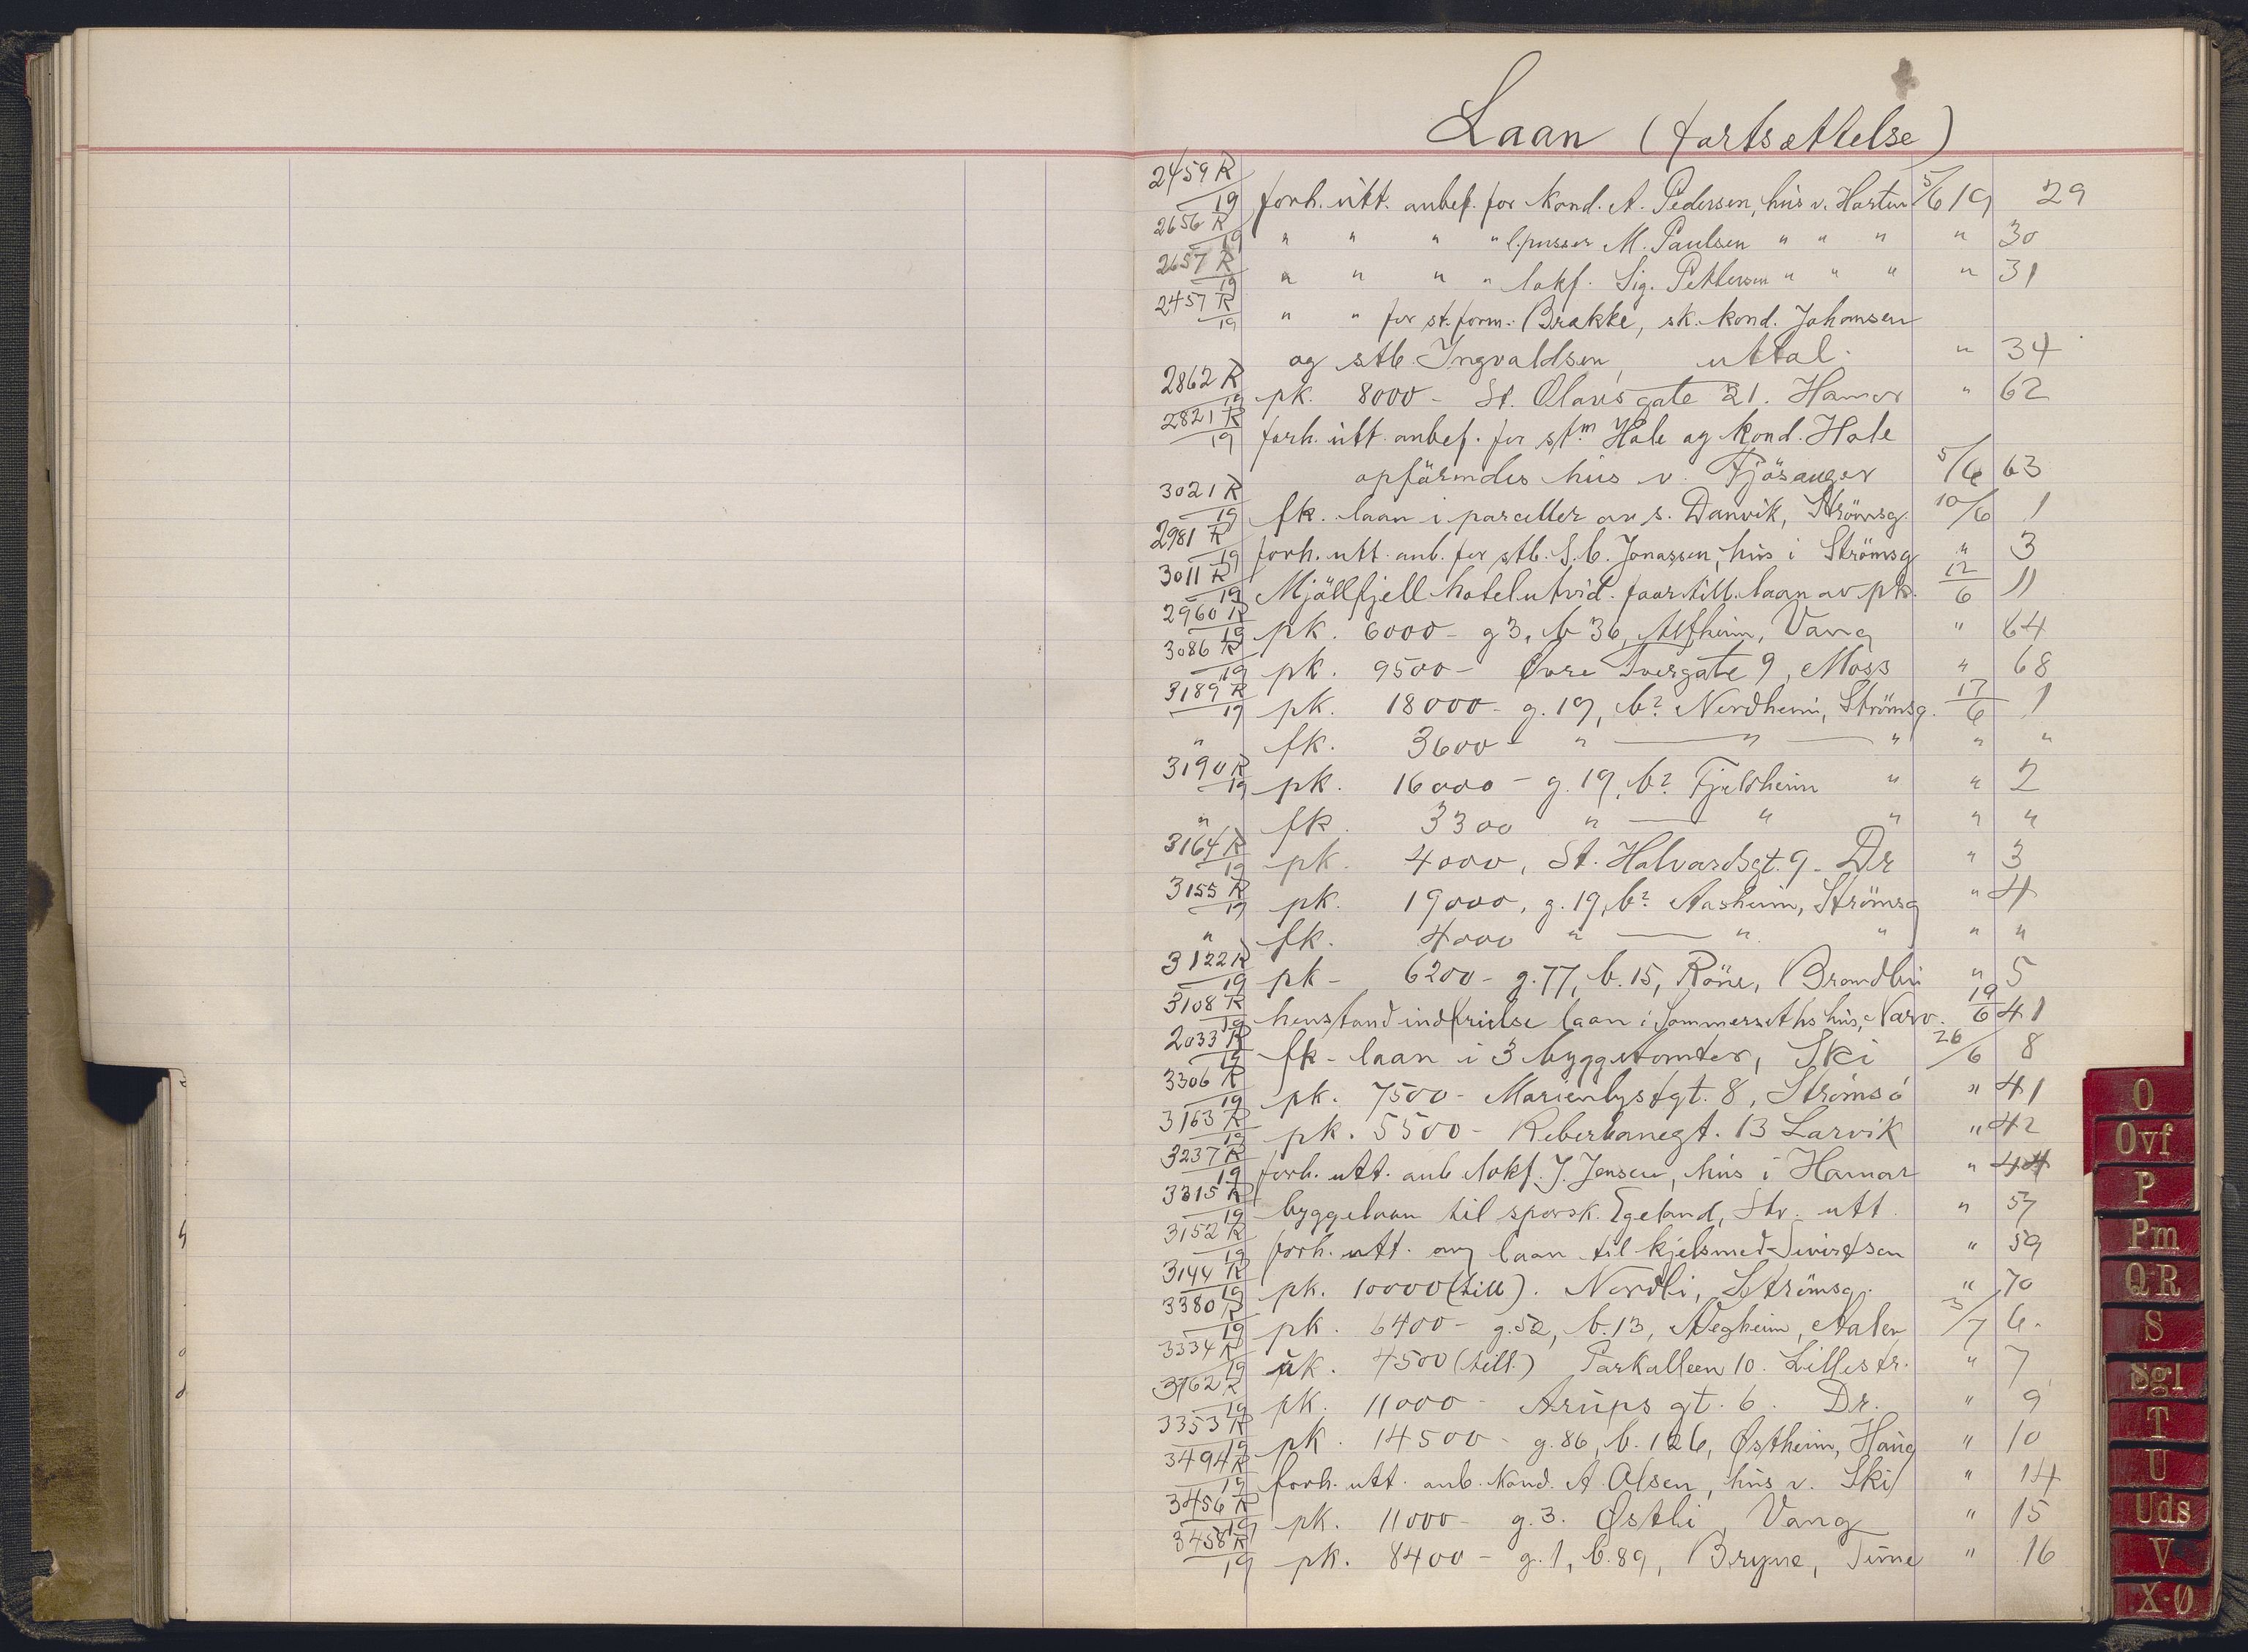 Laan (fortsættelse)
2459 R/19 forh. utt. anbef. for kond. A. Pedersen, hus v. Hortun 5/6 19 29
2656 R/19 " " " " l.pusser M. Paulsen " " " " 30
2657 R/19 " " " " lokf. Sig. Pettersen " " " " 31
2457 R/19 " " for st.form. Brakke, sk. kond. Johansen
og stb. Ingvaldsen, uttal. " 34
2862 R/19 pk. 8000 - St. Olavsgate 21. Hamar " 62
2821 R/19 forh. utt. anbef. for stm. Hole og kond. Hole
opförendes hus v. Fjösanger 5/6 63
3021 R/19 fk. laan i parceller av s. Danvik, Strömsg. 10/6 1
2981 R/19 forh. utt. anb. for stb. S. C. Jonassen, hus i Strömsg " 3
3011 R/19 Mjölfjell hotel utvid. faar till. laan av pk. 12/6 11
2960 R/19 pk. 6000 - g 3, b 36, Alfheim, Vang " 64
3086 R/19 pk. 9500 - Øvre Tvergate 9, Moss " 68
3189 R/19 pk. 18000 - g. 19, b? Nordheim, Strömsg. 17/6 1
" fk. 3600 - " " " " "
3190 R/19 pk. 16000 - g. 19, b? Fjeldheim " " 2
" fk. 3300 " " " " "
3164 R/19 pk. 4000, St. Halvardsgt. 9 - Dr " 3
3155 R/19 pk. 19000, g. 19, b? Aasheim, Strömsg " 4
" fk. 4000 " " " " "
3122 R/19 pk - 6200 - g. 77, b. 15, Röne, Brandbu " 5
3108 R/19 henstand indfrielse laan i Sommerseths hus, Narv. 19/6 41
2033 R/19 fk - laan i 3 byggetomter, Ski 26/6 8
3306 R/19 pk. 7500 - Marienlystgt. 8, Strömsö " 41
3163 R/19 pk. 5500 - Reberbanegt. 13 Larvik " 42
3237 R/19 forh. utt. anb lokf. J. Jensen, hus i Hamar " 44
3315 R/19 byggelaan til sporsk. Egeland, Str. utt. " 57
3152 R/19 forh. utt. ang laan til kjelsmed Sivertsen " 59
3144 R/19 pk. 10000 (till). Nordli, Strömsg. " 70
3380 R/19 pk. 6400 - g. 52, b. 13, Vegheim, Aalen 3/7 6.
3334 R/19 pk. 4500 (till.) Parkalleen 10. Lillestr. " 7
3162 R/19 pk. 11000 - Arups gt. 6. Dr. " 9
3353 R/19 pk. 14500 - g. 86, b. 126, Østheim, Haug " 10
3494 R/19 forh. utt. anb. kond. A Olsen, hus v. Ski " 14
3456 R/19 pk. 11000 - g. 3. Østli, Vang " 15
3458 R/19 pk. 8400 - g. 1, b. 89, Bryne, Time " 16
O
Ovf
P
Pm
Q-R
S
Sgl
T
U
Uds
V
X-Ø